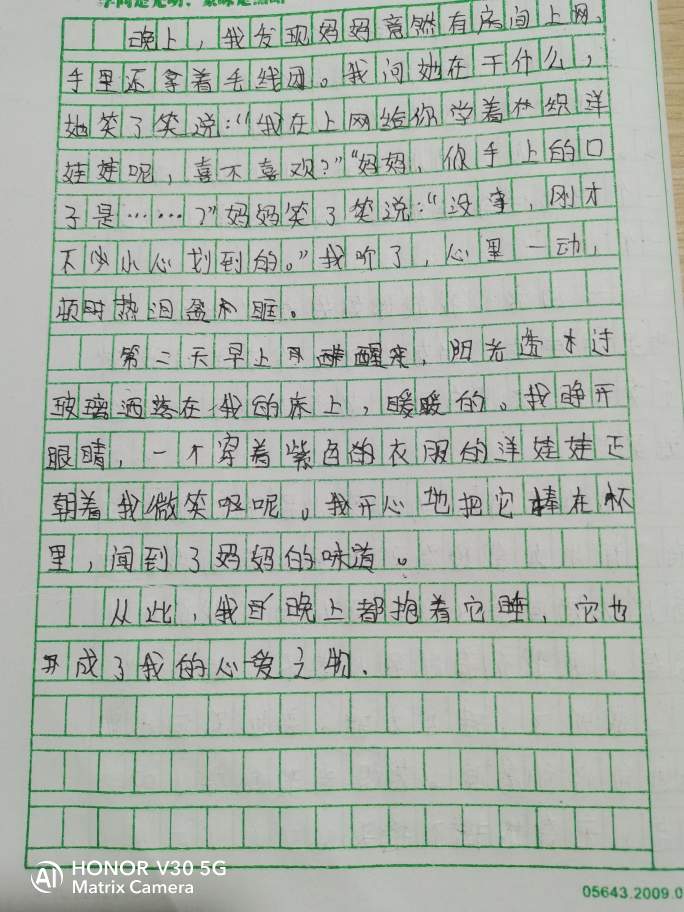 晚上，我发现妈妈竟然有房间上网，
手里还拿着毛线团。我问她在干什么，
她笑了笑说：“我在上网给你学着织洋
娃娃呢，喜不喜欢？”“妈妈，你手上的口
子是……？”妈妈笑了笑说：“没事，刚才
不小心划到的。”我听了，心里一动，
顿时热泪盈眶。
第二天早上醒来，阳光透过
玻璃洒落在我的床上，暖暖的。我睁开
眼睛，一个穿着紫色的衣服的洋娃娃正
朝着我微笑呢。我开心地把它捧在怀
里，闻到了妈妈的味道。
从此，我每晚上都抱着它睡，它也
成了我的心爱之物.
HONOR V30 5G
Matrix Camera
05643.2009.0